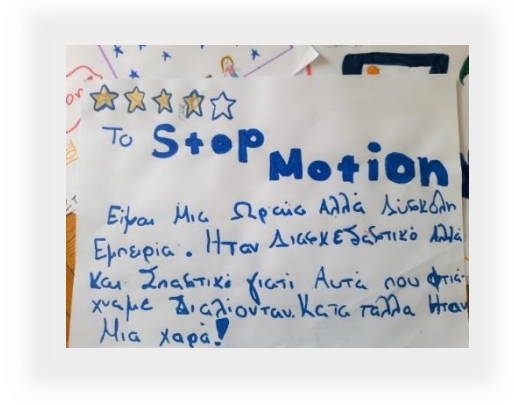 Το Stop Motion
Είμαι Μια Ωραία Αλλά Δύσκολη
Εμπειρία. Ηταν Διασχεδαστικό Αλλά
Και Σπαστικό γιατί Αυτά που φτιά-
χναμε Διαλιόνταν. Κατα ταλλα Ηταν
Μια χαρά!